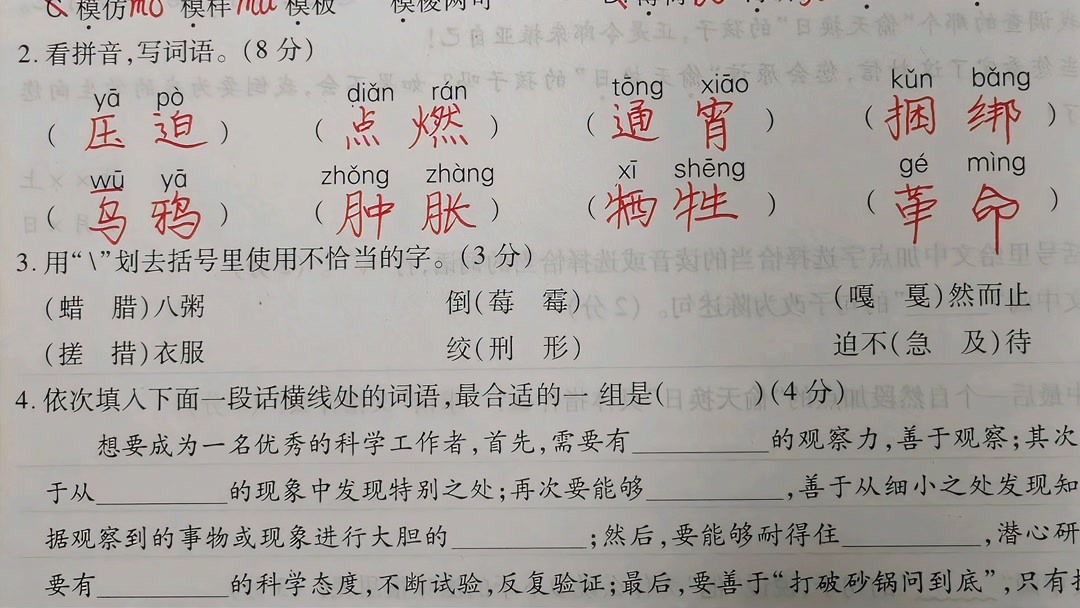 C. 模仿mó 模样mú 模板 模棱两可
2. 看拼音,写词语。(8 分)
yā pò diǎn rán tōng xiāo kǔn bǎng
( 压 迫 ) ( 点 燃 ) ( 通 宵 ) ( 捆 绑 )
wū yā zhǒng zhàng xī shēng gé mìng
( 乌 鸦 ) ( 肿 胀 ) ( 牺 牲 ) ( 革 命 )
3. 用“\”划去括号里使用不恰当的字。(3 分)
(蜡 腊)八粥 倒(莓 霉) (嘎 戛)然而止
(搓 措)衣服 绞(刑 形) 迫不(急 及)待
4. 依次填入下面一段话横线处的词语,最合适的一 组是( )(4 分)
想要成为一名优秀的科学工作者,首先,需要有________的观察力,善于观察;其次
于从________的现象中发现特别之处;再次要能够________,善于从细小之处发现知
据观察到的事物或现象进行大胆的________;然后,要能够耐得住________,潜心研
要有________的科学态度,不断试验,反复验证;最后,要善于“打破砂锅问到底”,只有